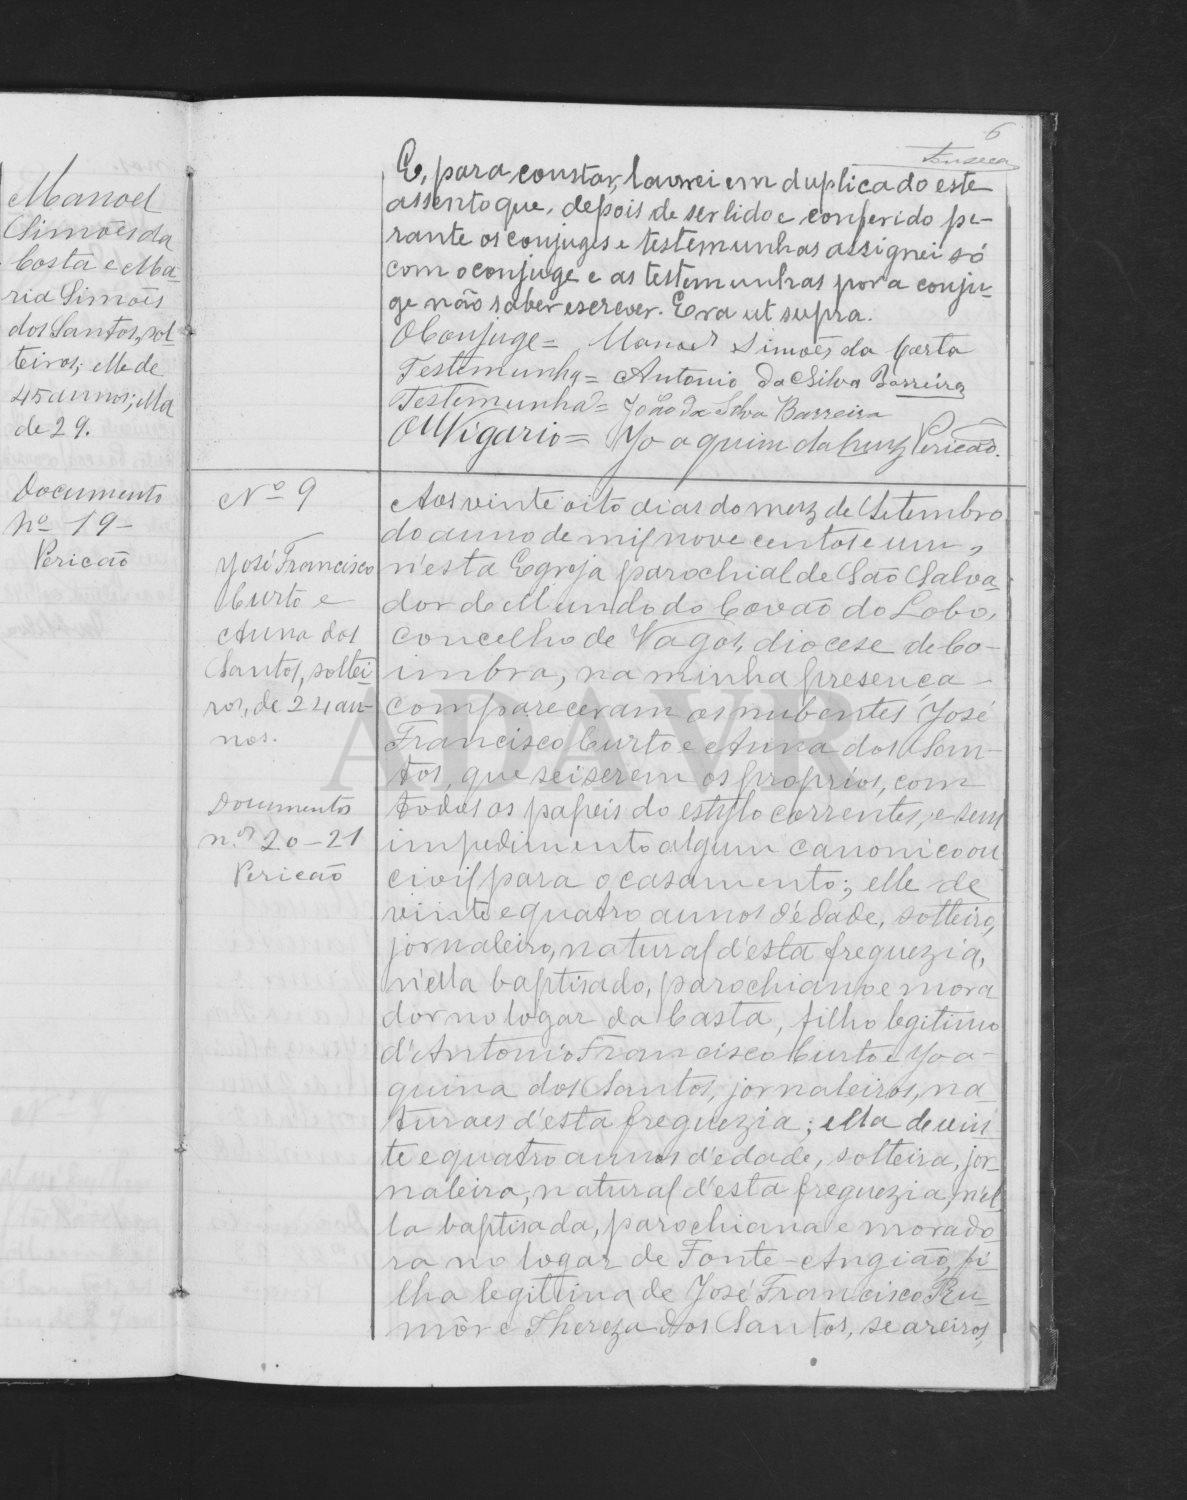 Manoel
Simões da
Costa e Ma-
ria Simões
dos Santos, sol-
teiros; elle de
45 annos; ella
de 29.
Documento
Nº 19-
Pericão
6
Fonseca
E, para constar, lavrei em duplicado este
assento que, depois de ser lido e conferido pe-
rante os conjuges e testemunhas assignei só
com o conjuge e as testemunhas por a conju-
ge não saber escrever. Era ut supra.
O Conjuge = Manoel Simões da Costa
Testemunha = Antonio da Silva Barreira
Testemunha = João da Silva Barreira
O Vigario = Joaquim da Cruz Pericão.
Nº 9
José Francisco
Curto e
Anna dos
Santos, soltei-
ros, de 24 an-
nos.
Documentos
n.os 20-21
Pericão
Aos vinte oito dias do mez de Setembro
do anno de mil nove centos e um,
n'esta Egreja parochial de São Salva-
dor do Mundo do Covão do Lobo,
concelho de Vagos, diocese de Co-
imbra, na minha presença
compareceram os nubentes José
Francisco Curto e Anna dos San-
tos, que sei serem os proprios, com
todos os papeis do estylo correntes, e sem
impedimento algum canonico ou
civil para o casamento; elle de
vinte e quatro annos d'edade, solteiro,
jornaleiro, natural d'esta freguezia,
n'ella baptisado, parochiano e mora
dor no logar da Casta, filho legitimo
d'Antonio Francisco Curto e Joa-
quina dos Santos, jornaleiros, na-
turaes d'esta freguezia; ella de vin-
te e quatro annos d'edade, solteira, jor-
naleira, natural d'esta freguezia, n'el-
la baptisada, parochiana e morado-
ra no logar de Fonte-Angião, fi-
lha legitima de José Francisco Ru-
môr e Thereza dos Santos, seareiros,
ADAVR